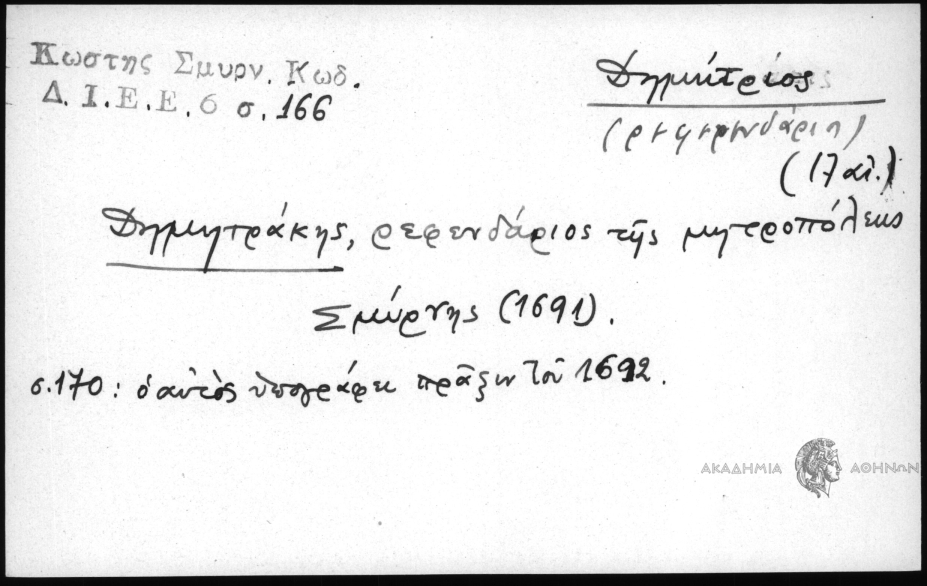 Κωστης Σμυρν. Κωδ.
Δ. Ι. Ε. Ε. 6 σ. 166
Δημήτριος
(ρεφερενδάριος)
(17 αἰ.)
Δημητράκης, ρεφενδάριος τῆς μητροπόλεως
Σμύρνης (1691).
σ. 170: ὁ αὐτὸς ὑπογράφει πρᾶξιν τοῦ 1692.
ΑΚΑΔΗΜΙΑ ΑΘΗΝΩΝ